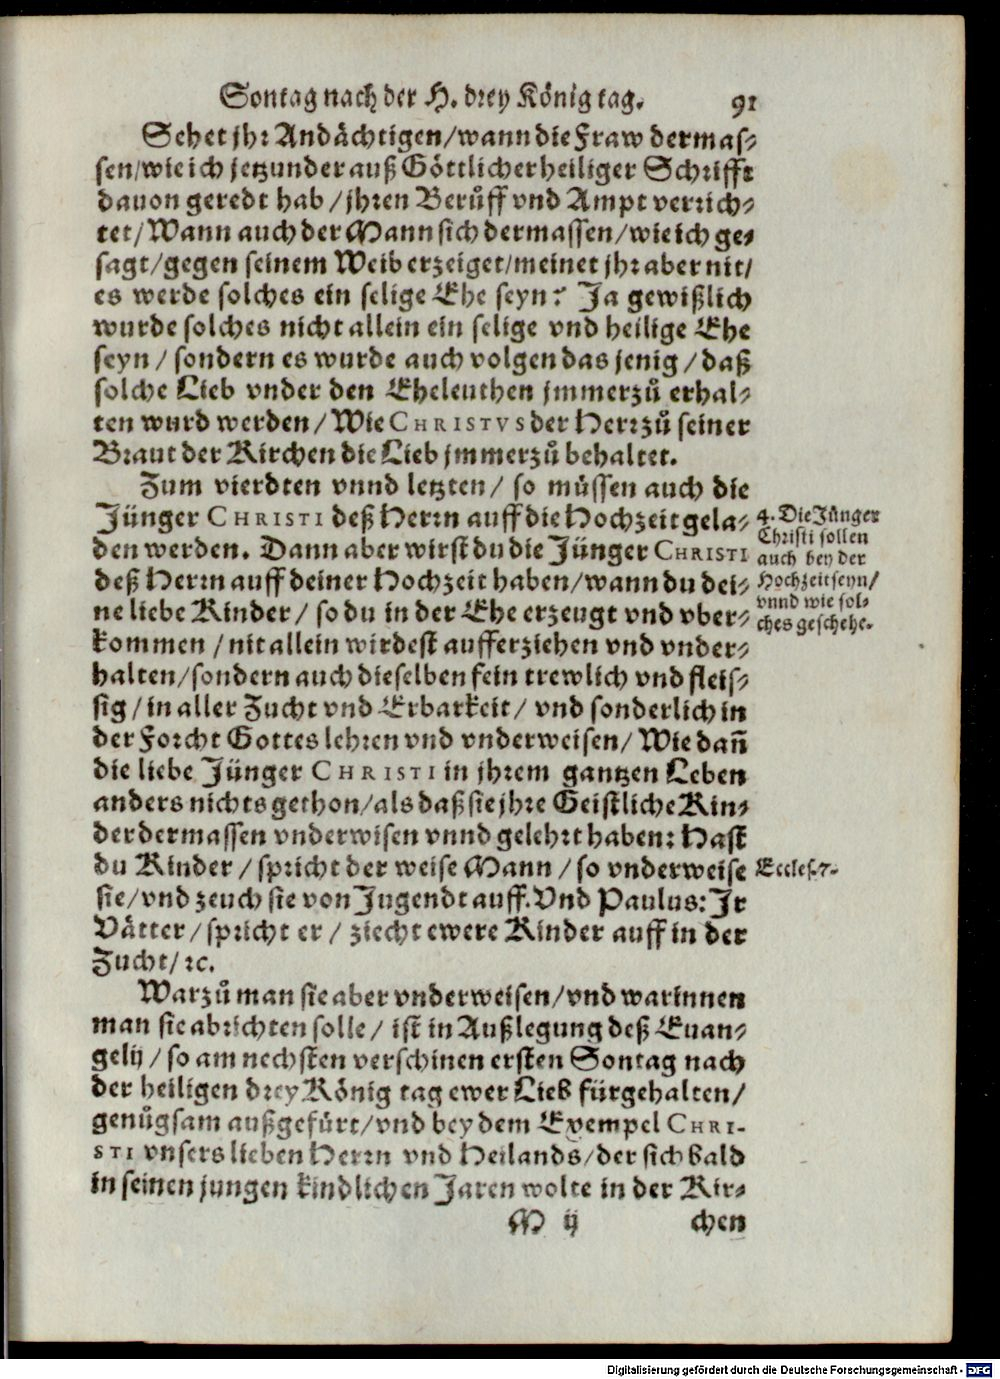 Sontag nach der H. drey König tag. 91
Sehet jhr Andächtigen/wann die Fraw dermas-
sen/wie ich jetzunder auß Göttlicher heiliger Schrifft
dauon geredt hab/jhren Berůff vnd Ampt verrich-
tet/Wann auch der Mann sich dermassen/wie ich ge-
sagt/gegen seinem Weib erzeiget/meinet jhr aber nit/
es werde solches ein selige Ehe seyn? Ja gewißlich
wurde solches nicht allein ein selige vnd heilige Ehe
seyn/sondern es wurde auch volgen das jenig/daß
solche Lieb vnder den Eheleuthen jmmerzů erhal-
ten wurd werden/Wie CHRISTVS der Herr zů seiner
Braut der Kirchen die Lieb jmmerzů behaltet.
Zum vierdten vnnd letzten/ so müssen auch die
Jünger CHRISTI deß Herrn auff die Hochzeit gela-
den werden. Dann aber wirst du die Jünger CHRISTI
deß Herrn auff deiner Hochzeit haben/wann du dei-
ne liebe Kinder/ so du in der Ehe erzeugt vnd vber-
kommen/nit allein wirdest aufferziehen vnd vnder-
halten/sondern auch dieselben fein trewlich vnd fleis-
sig/in aller Zucht vnd Erbarkeit/ vnd sonderlich in
der Forcht Gottes lehren vnd vnderweisen/ Wie dañ
die liebe Jünger CHRISTI in jhrem gantzen Leben
anders nichts gethon/als daß sie jhre Geistliche Kin-
der dermassen vnderwisen vnnd gelehrt haben: Hast
du Kinder/spricht der weise Mann/so vnderweise
sie/vnd zeuch sie von Jugendt auff. Vnd Paulus: Jr
Vätter/spricht er/ ziecht ewere Kinder auff in der
Zucht/ꝛc.
Warzů man sie aber vnderweisen/vnd warinnen
man sie abrichten solle/ ist in Außlegung deß Euan-
gelij/so am nechsten verschinen ersten Sontag nach
der heiligen drey König tag ewer Lieb fürgehalten/
genůgsam außgefürt/vnd bey dem Exempel CHRI-
STI vnsers lieben Herrn vnd Heilands/der sich bald
in seinen jungen kindlichen Jaren wolte in der Kir-
M ij chen
4. Die Jünger
Christi sollen
auch bey der
Hochzeit seyn/
vnnd wie sol-
ches geschehe.
Eccles. 7.
Digitalisierung gefördert durch die Deutsche Forschungsgemeinschaft - DFG